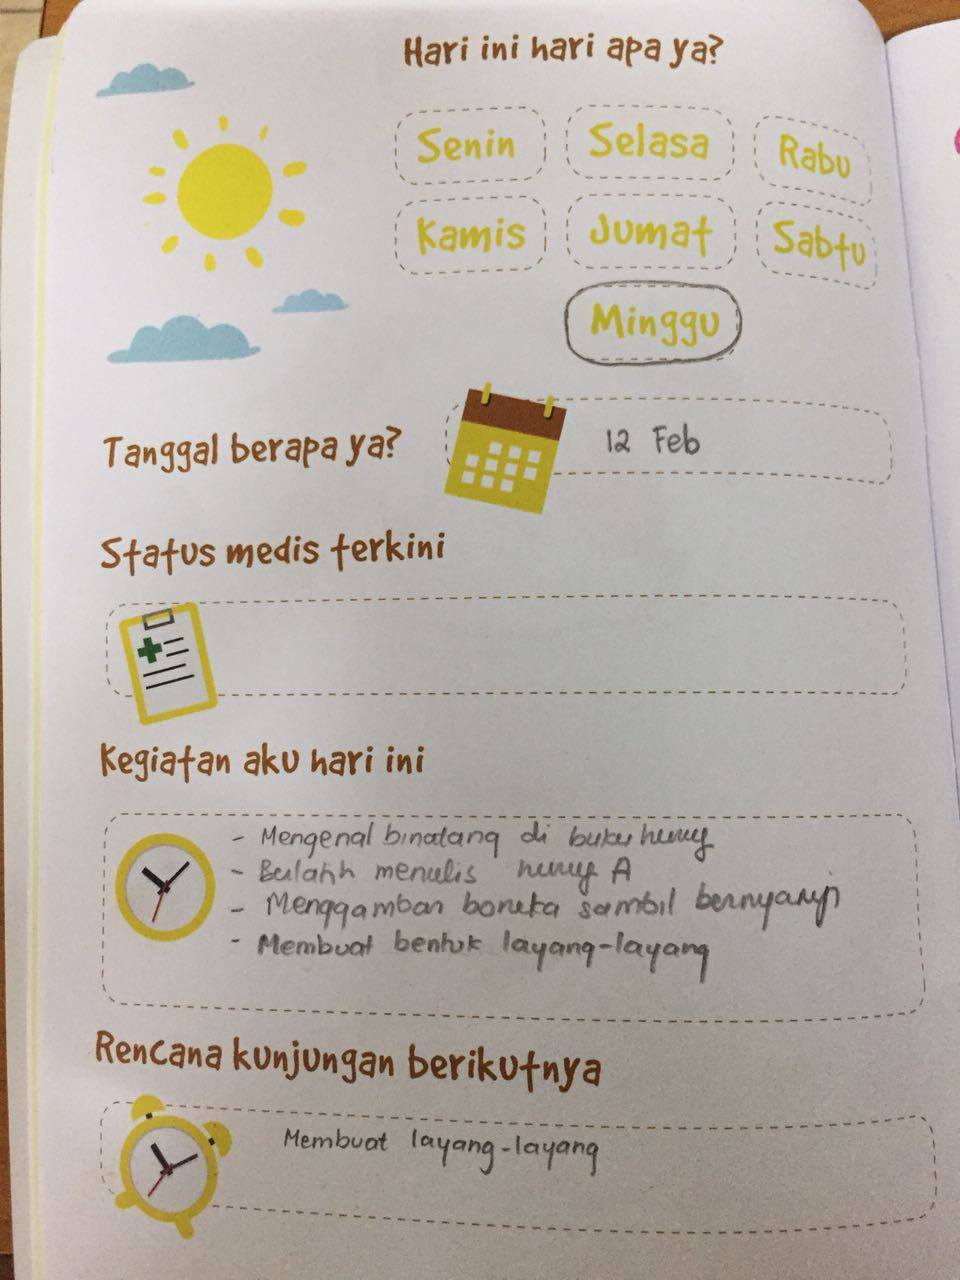 Hari ini hari apa ya?
Senin Selasa Rabu
Kamis Jumat Sabtu
Minggu
Tanggal berapa ya? 12 Feb
Status medis terkini
Kegiatan aku hari ini
- Mengenal binatang di buku huruf
- Belatih menulis huruf A
- Menggambar boneka sambil bernyanyi
- Membuat bentuk layang-layang
Rencana kunjungan berikutnya
Membuat layang-layang